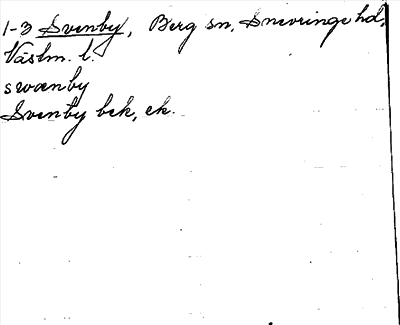 1-3 Svenby, Berg sn, Snevringe hd,
Västm. l.
swænby
Svenby bek, ek.